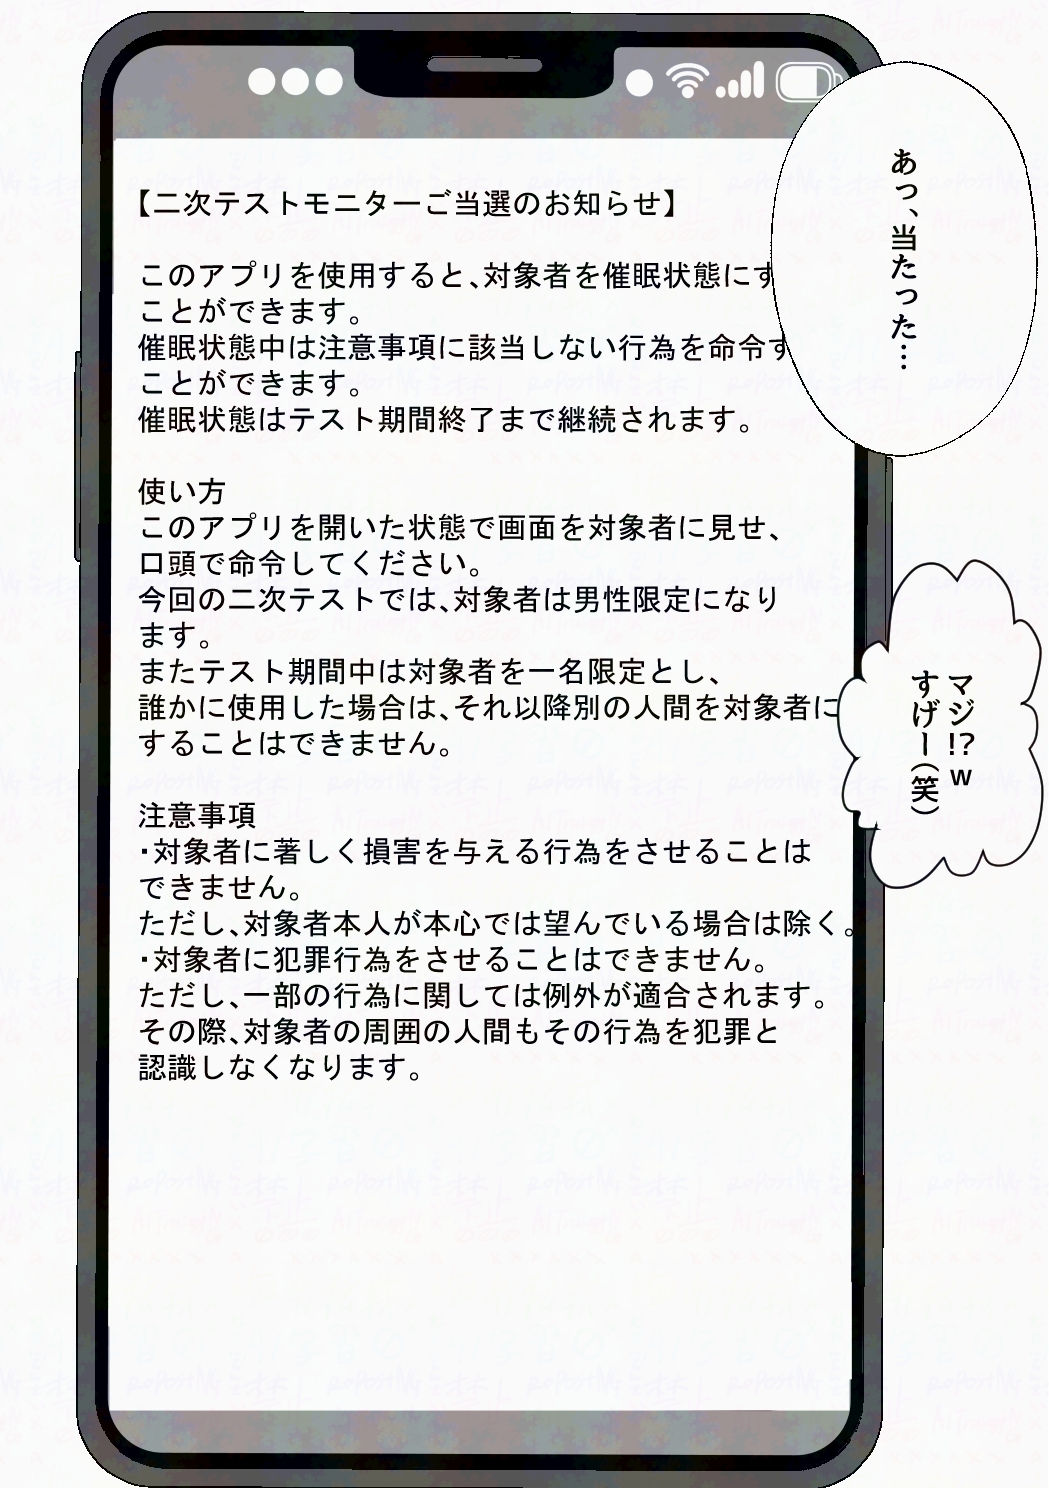 【二次テストモニターご当選のお知らせ】
このアプリを使用すると、対象者を催眠状態にす
ことができます。
催眠状態中は注意事項に該当しない行為を命令す
ことができます。
催眠状態はテスト期間終了まで継続されます。
使い方
このアプリを開いた状態で画面を対象者に見せ、
口頭で命令してください。
今回の二次テストでは、対象者は男性限定になり
ます。
またテスト期間中は対象者を一名限定とし、
誰かに使用した場合は、それ以降別の人間を対象者に
することはできません。
注意事項
・対象者に著しく損害を与える行為をさせることは
できません。
ただし、対象者本人が本心では望んでいる場合は除く。
・対象者に犯罪行為をさせることはできません。
ただし、一部の行為に関しては例外が適合されます。
その際、対象者の周囲の人間もその行為を犯罪と
認識しなくなります。
あっ、当たった…
マジ!?w
すげー(笑)